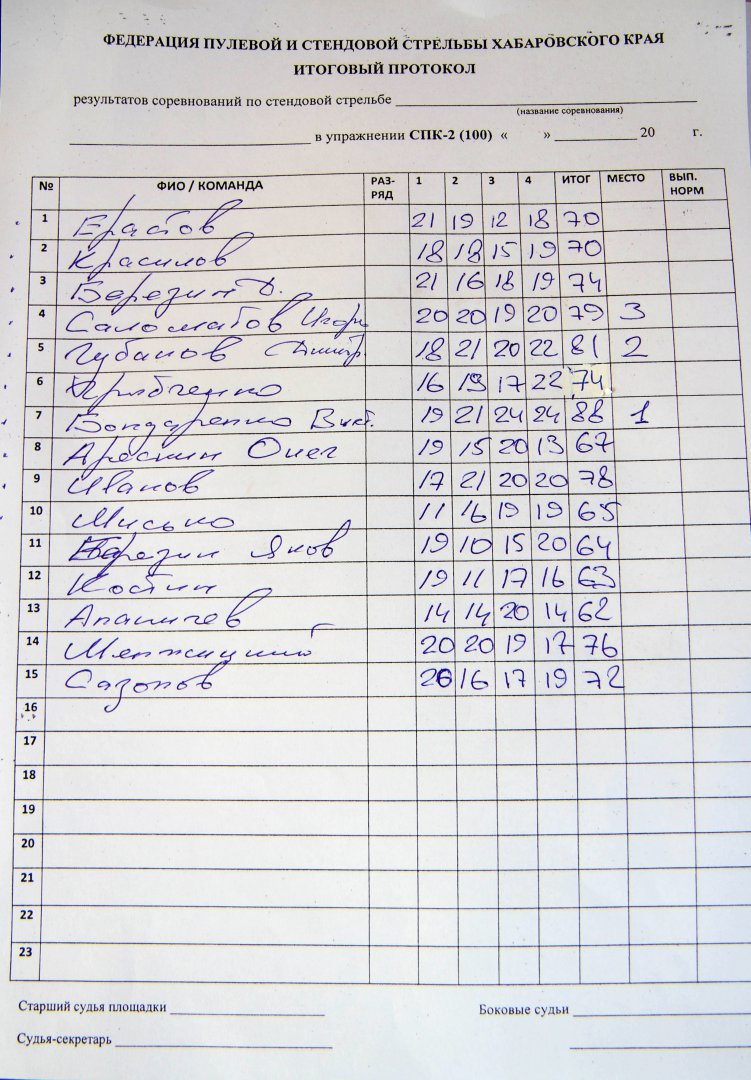 ФЕДЕРАЦИЯ ПУЛЕВОЙ И СТЕНДОВОЙ СТРЕЛЬБЫ ХАБАРОВСКОГО КРАЯ
ИТОГОВЫЙ ПРОТОКОЛ
результатов соревнований по стендовой стрельбе
(название соревнования)
в упражнении СПК-2 (100) « » 20 г.
№ ФИО / КОМАНДА РАЗ-РЯД 1 2 3 4 ИТОГ МЕСТО ВЫП. НОРМ
1 Ерастов 21 19 12 18 70
2 Красилов 18 18 15 19 70
3 Березин Д. 21 16 18 19 74
4 Саломатов Игорь 20 20 19 20 79 3
5 Губанов Дмитр. 18 21 20 22 81 2
6 16 19 17 22 74
7 Бондаренко Викт. 19 21 24 24 88 1
8 Арескин Олег 19 15 20 13 67
9 Иванов 17 21 20 20 78
10 Мисько 11 16 19 19 65
11 Березин Яков 19 10 15 20 64
12 Костин 19 11 17 16 63
13 Апаличев 14 14 20 14 62
14 20 20 19 17 76
15 Сазонов 20 16 17 19 72
16
17
18
19
20
21
22
23
Старший судья площадки Боковые судьи
Судья-секретарь